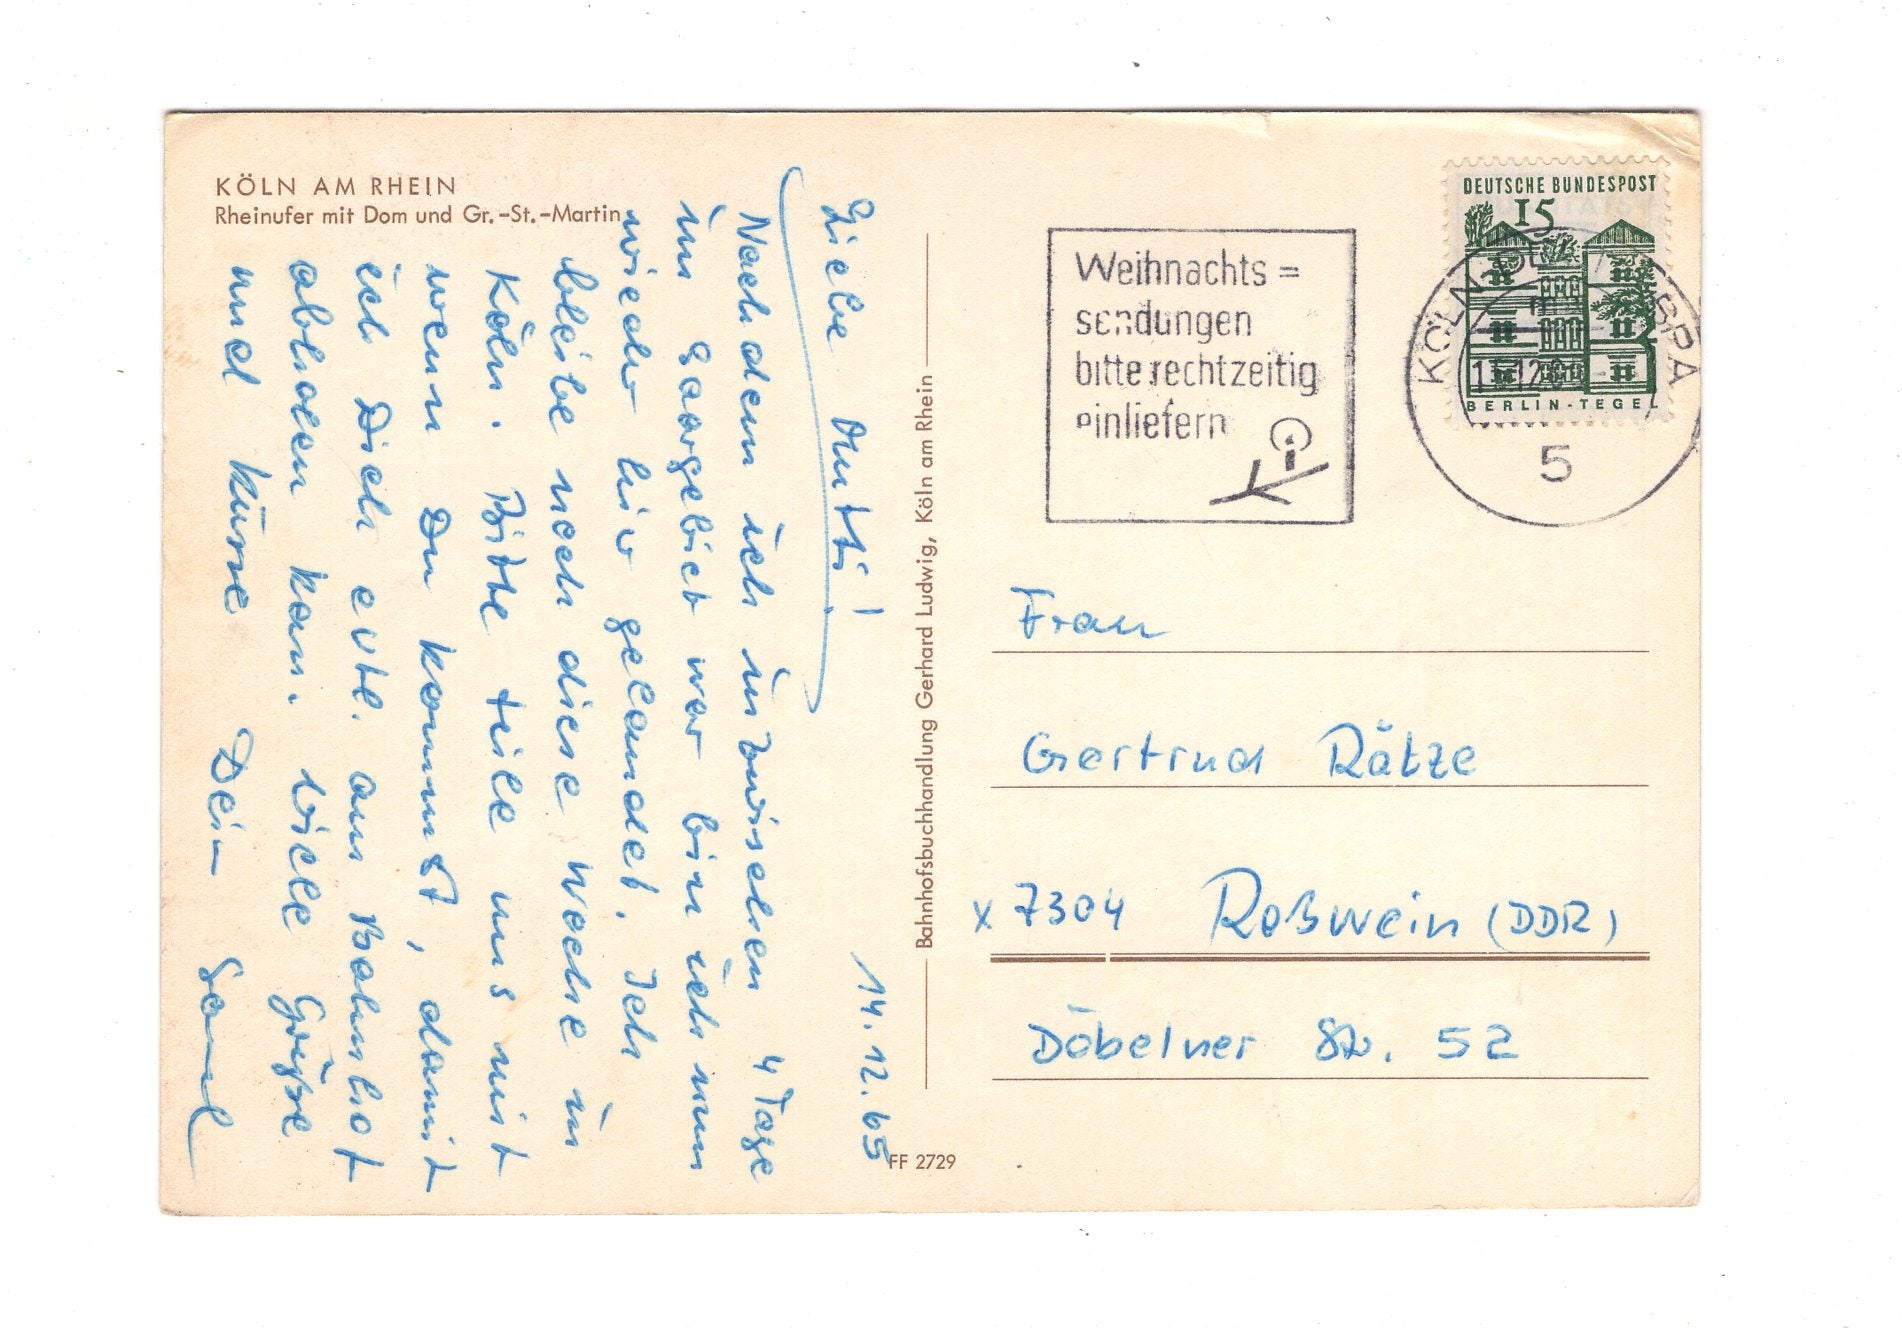 KÖLN AM RHEIN
Rheinufer mit Dom und Gr.-St.-Martin
14.12.65
Liebe Mutti!
Nachdem ich inzwischen 4 Tage
im Saargebiet war bin ich nun
wieder hier gelandet. Ich
bleibe noch diese Woche in
Köln. Bitte teile uns mit
wenn Du kommst, damit
ich Dich evtl. am Bahnhof
abholen kann. Viele Grüße
und Küsse Dein
Bahnhofsbuchhandlung Gerhard Ludwig, Köln am Rhein
FF 2729
Weihnachts=
sendungen
bitte rechtzeitig
einliefern
DEUTSCHE BUNDESPOST
15
BERLIN-TEGEL
KÖLN
5
Frau
Gertrud Rätze
x 7304 Roßwein (DDR)
Döbelner Str. 52